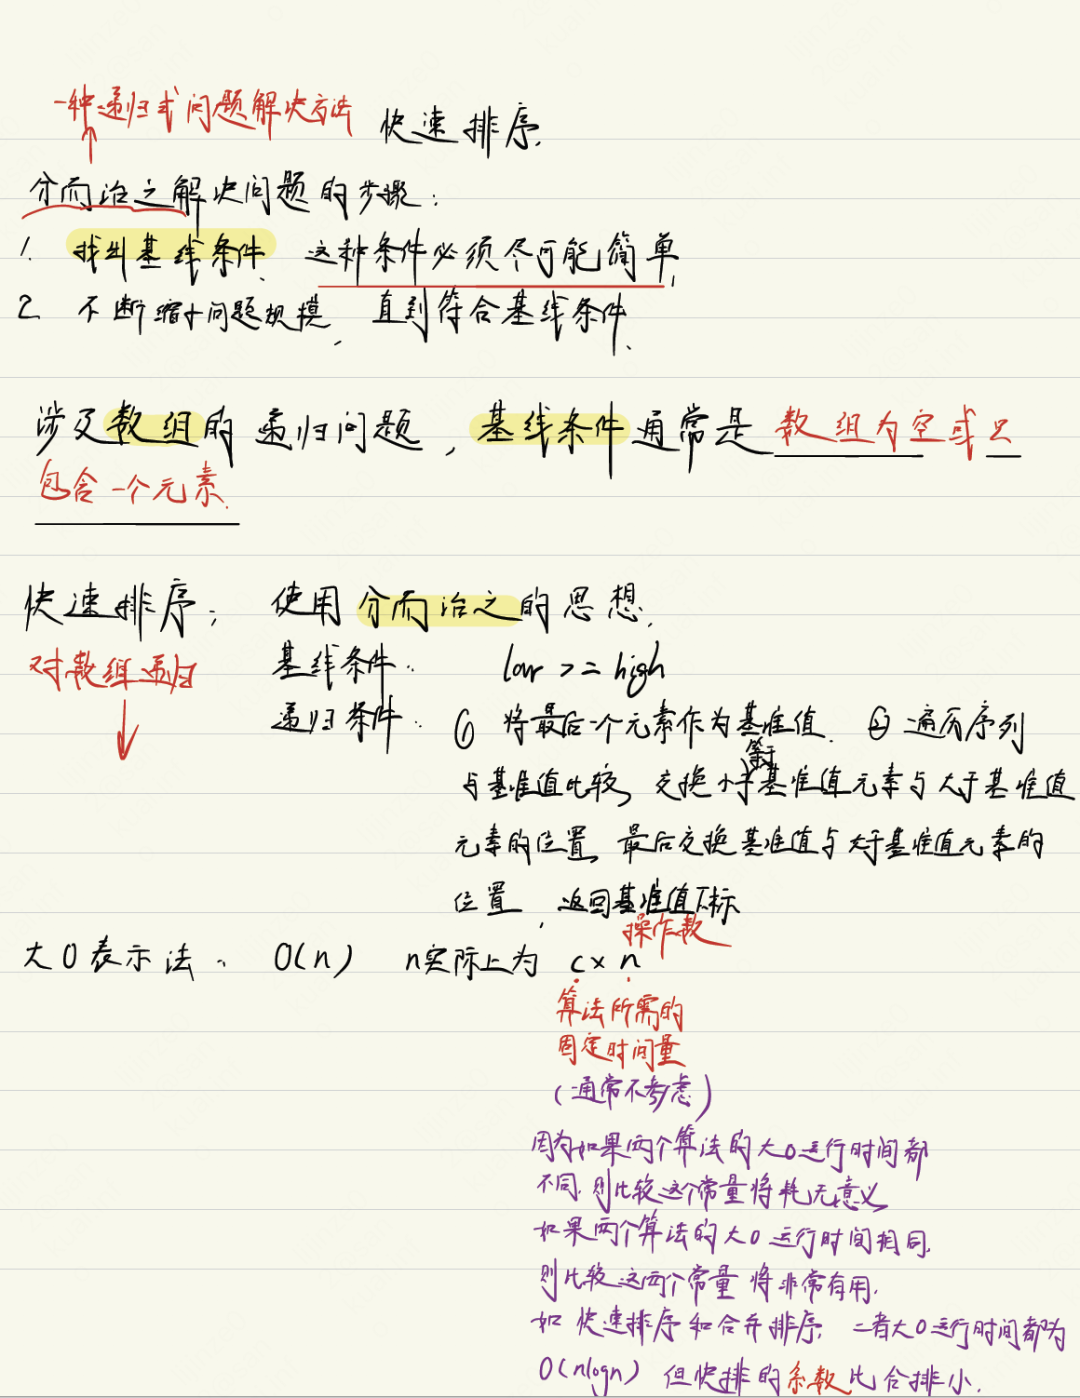 一种递归式问题解决方法
快速排序.
分而治之解决问题的步骤:
1. 找出基线条件. 这种条件必须尽可能简单,
2 不断缩小问题规模, 直到符合基线条件.
涉及数组的递归问题, 基线条件通常是数组为空或只
包含一个元素.
快速排序: 使用分而治之的思想.
对数组递归
基线条件: low >= high
递归条件: ① 将最后一个元素作为基准值. ② 遍历序列
等于
与基准值比较, 交换小于基准值元素与大于基准值
元素的位置, 最后交换基准值与大于基准值元素的
位置, 返回基准值下标
操作数
大O表示法: O(n) n实际上为 c × n
算法所需的
固定时间量
(通常不考虑)
因为如果两个算法的大O运行时间都
不同, 则比较这个常量将耗无意义
如果两个算法的大O运行时间相同,
则比较这两个常量将非常有用.
如 快速排序和合并排序, 二者大O运行时间都为
O(nlogn) 但快排的系数比合排小.